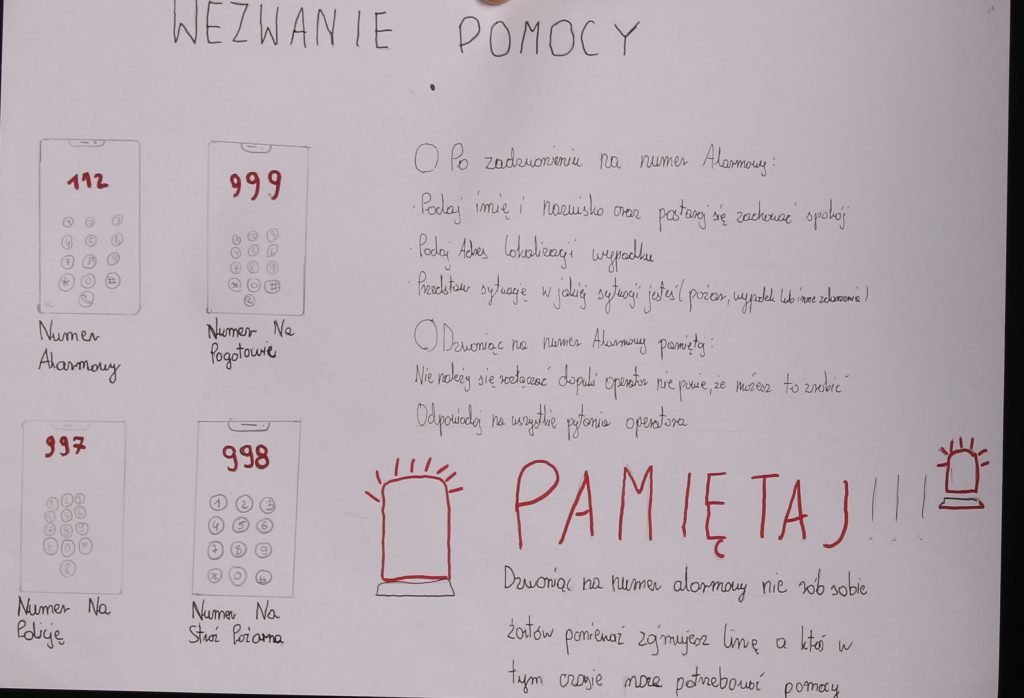 WEZWANIE POMOCY
112
Numer
Alarmowy
999
Numer Na
Pogotowie
997
Numer Na
Policję
998
1 2 3
4 5 6
7 8 9
* 0 #
Numer Na
Straż Pożarna
Po zadzwonieniu na numer Alarmowy:
· Podaj imię i nazwisko oraz postaraj się zachować spokój
· Podaj Adres lokalizacji wypadku
· Przedstaw sytuację w jakiej sytuacji jesteś (pożar, wypadek lub inne zdarzenie)
Dzwoniąc na numer Alarmowy pamiętaj:
Nie należy się rozłączać dopuki operator nie powie, że możesz to zrobić
Odpowiadaj na wszystkie pytania operatora
PAMIĘTAJ!!!
Dzwoniąc na numer alarmowy nie rób sobie
żartów ponieważ zajmujesz linię a ktoś w
tym czasie może potrzebować pomocy